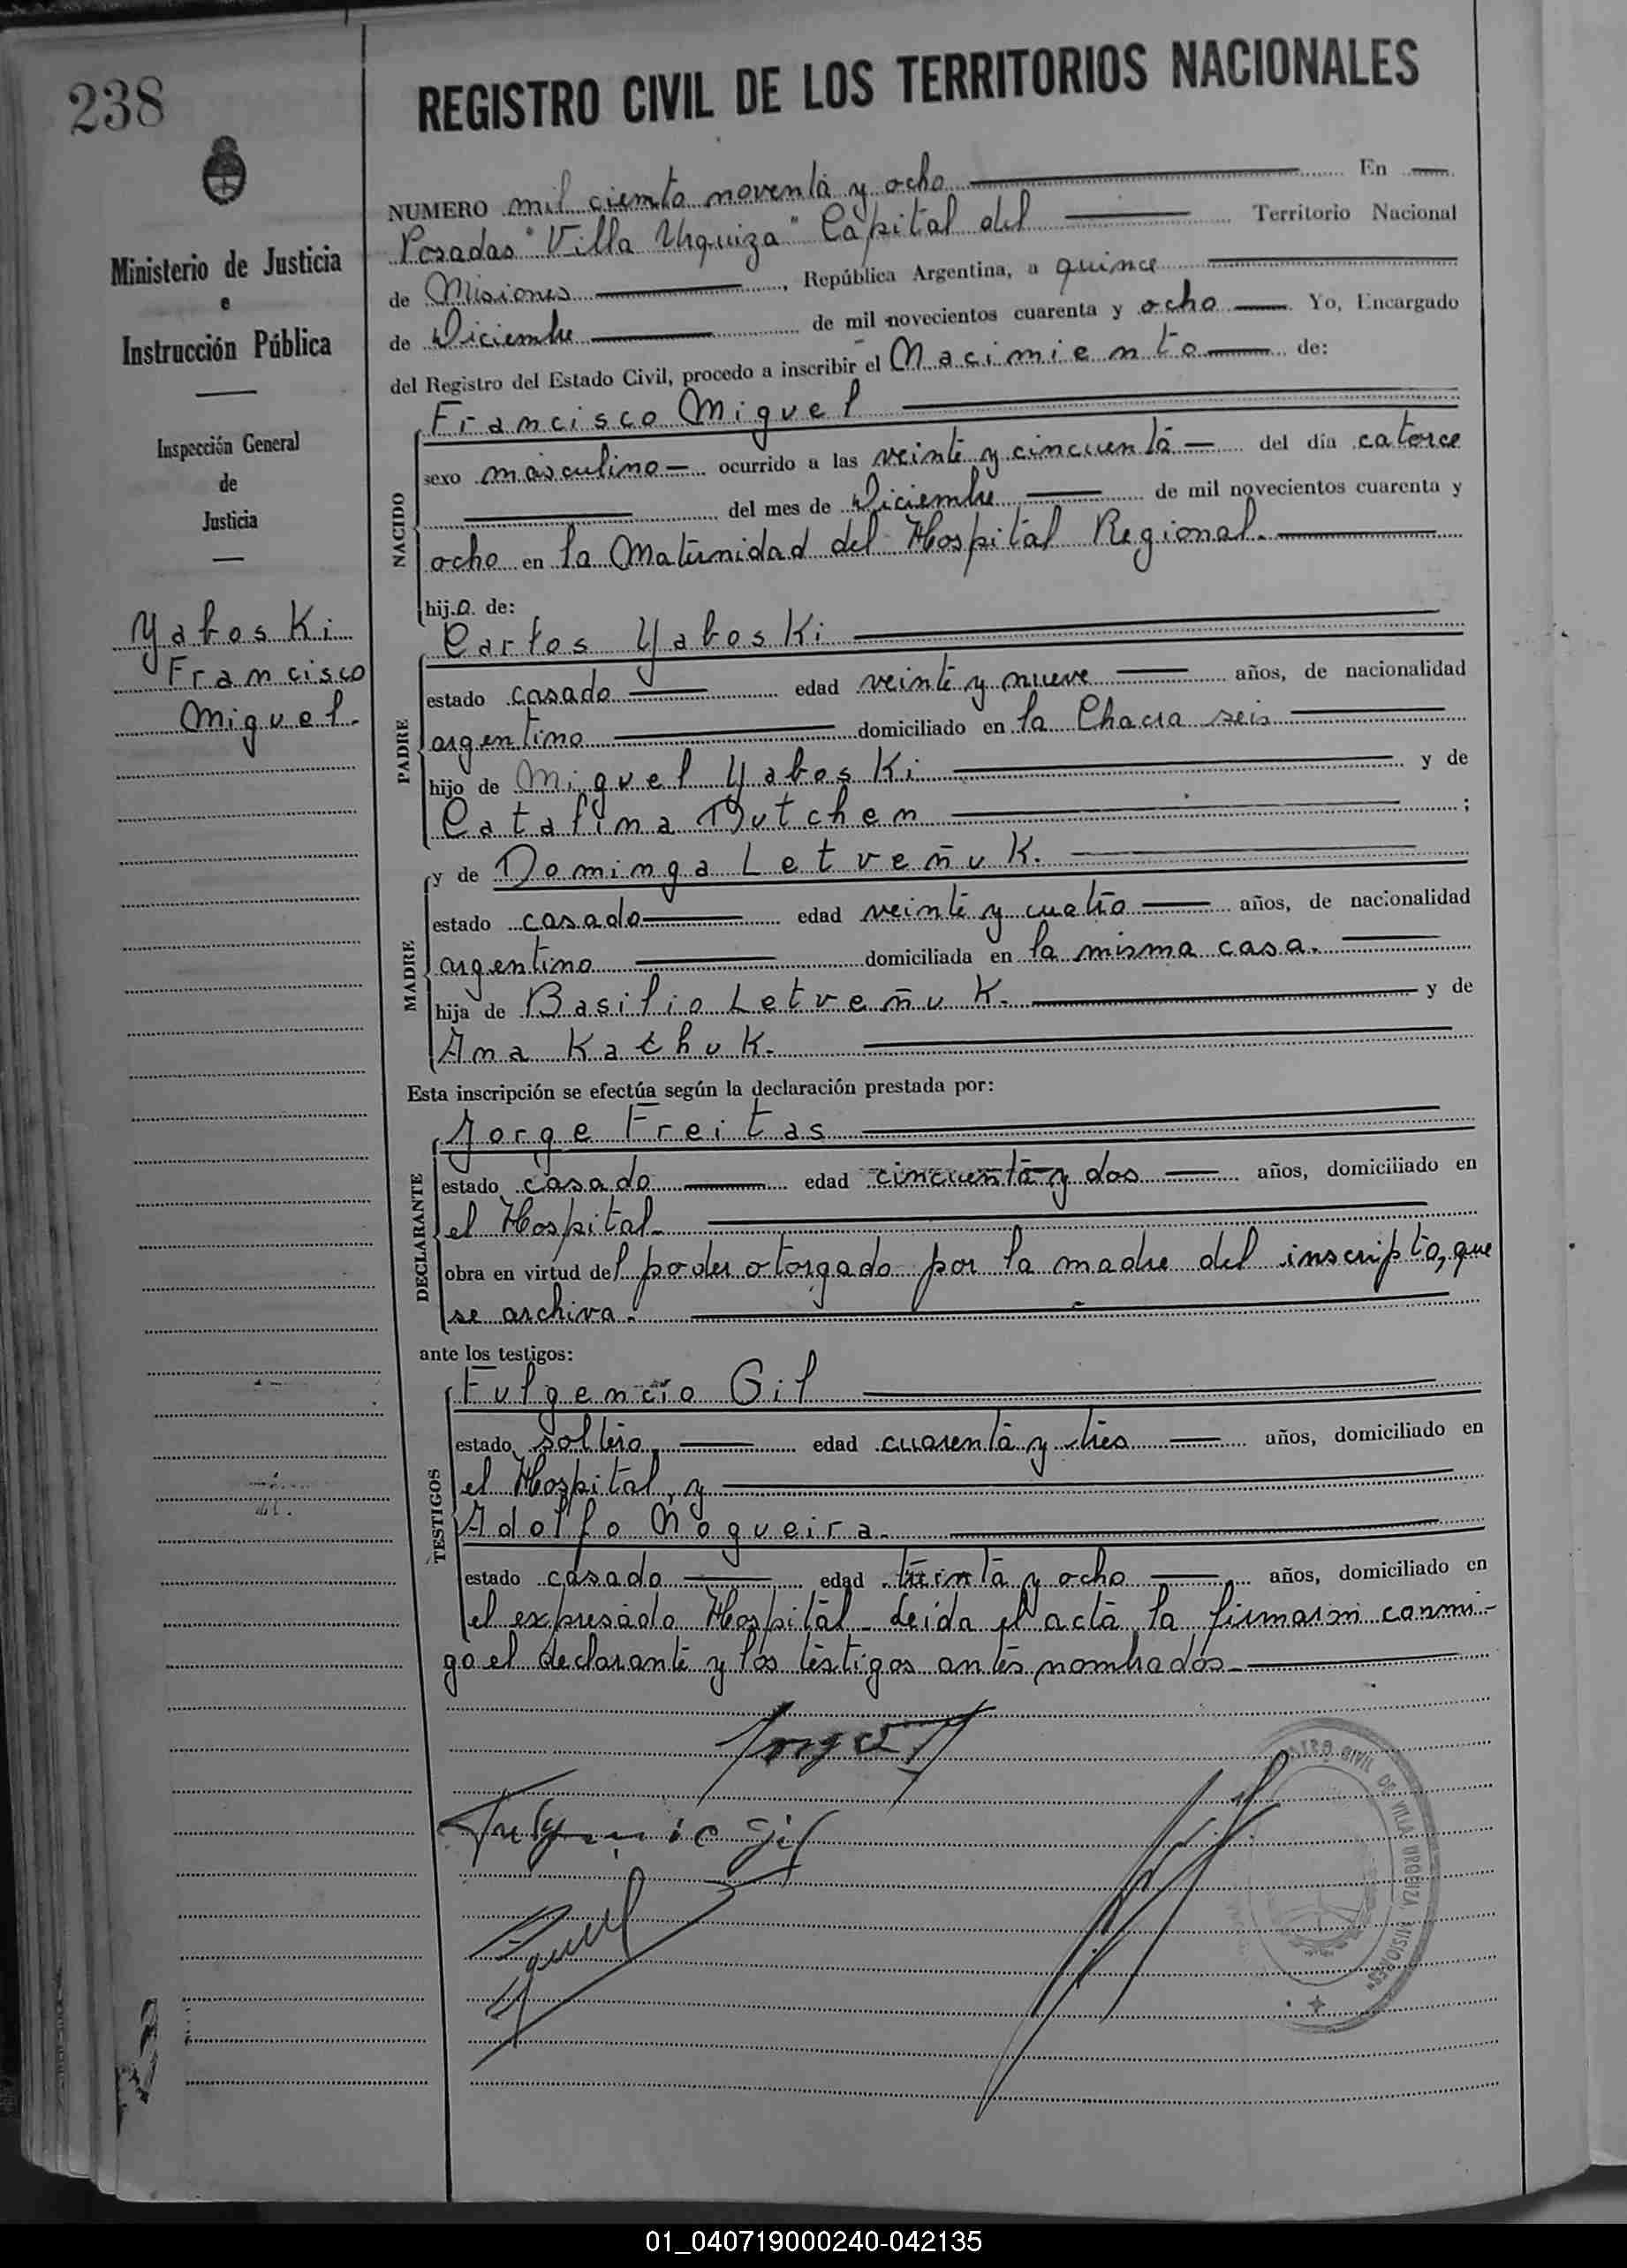 238
REGISTRO CIVIL DE LOS TERRITORIOS NACIONALES
Ministerio de Justicia
e
Instrucción Pública
Inspección General
de
Justicia
Yaboski
Francisco
Miguel.
NUMERO mil ciento noventa y ocho En
Posadas "Villa Urquiza" Capital del Territorio Nacional
de Misiones, República Argentina, a quince
de Diciembre de mil novecientos cuarenta y ocho Yo, Encargado
del Registro del Estado Civil, procedo a inscribir el Nacimiento de:
NACIDO
Francisco Miguel
sexo masculino ocurrido a las veinte y cincuenta del día catorce
del mes de Diciembre de mil novecientos cuarenta y
ocho en la Maternidad del Hospital Regional.
hijo de:
PADRE
Carlos Yaboski
estado casado edad veinte y nueve años, de nacionalidad
argentino domiciliado en la Chacra seis
hijo de Miguel Yaboski y de
Catalina Dutchen ;
MADRE
y de Dominga Letveñuk.
estado casada edad veinte y cuatro años, de nacionalidad
argentina domiciliada en la misma casa.
hija de Basilio Letveñuk. y de
Ana Kachuk.
Esta inscripción se efectúa según la declaración prestada por:
DECLARANTE
Jorge Freitas
estado casado edad cincuenta y dos años, domiciliado en
el Hospital.
obra en virtud del poder otorgado por la madre del inscripto, que
se archiva.
ante los testigos:
TESTIGOS
Fulgencio Gil
estado soltero, edad cuarenta y tres años, domiciliado en
el Hospital, y
Adolfo Nogueira.
estado casado edad treinta y ocho años, domiciliado en
el expresado Hospital. Leída el acta, la firmaron conmi-
go el declarante y los testigos antes nombrados.
Fulgencio Gil
REGISTRO CIVIL DE VILLA URQUIZA MISIONES
01_040719000240-042135